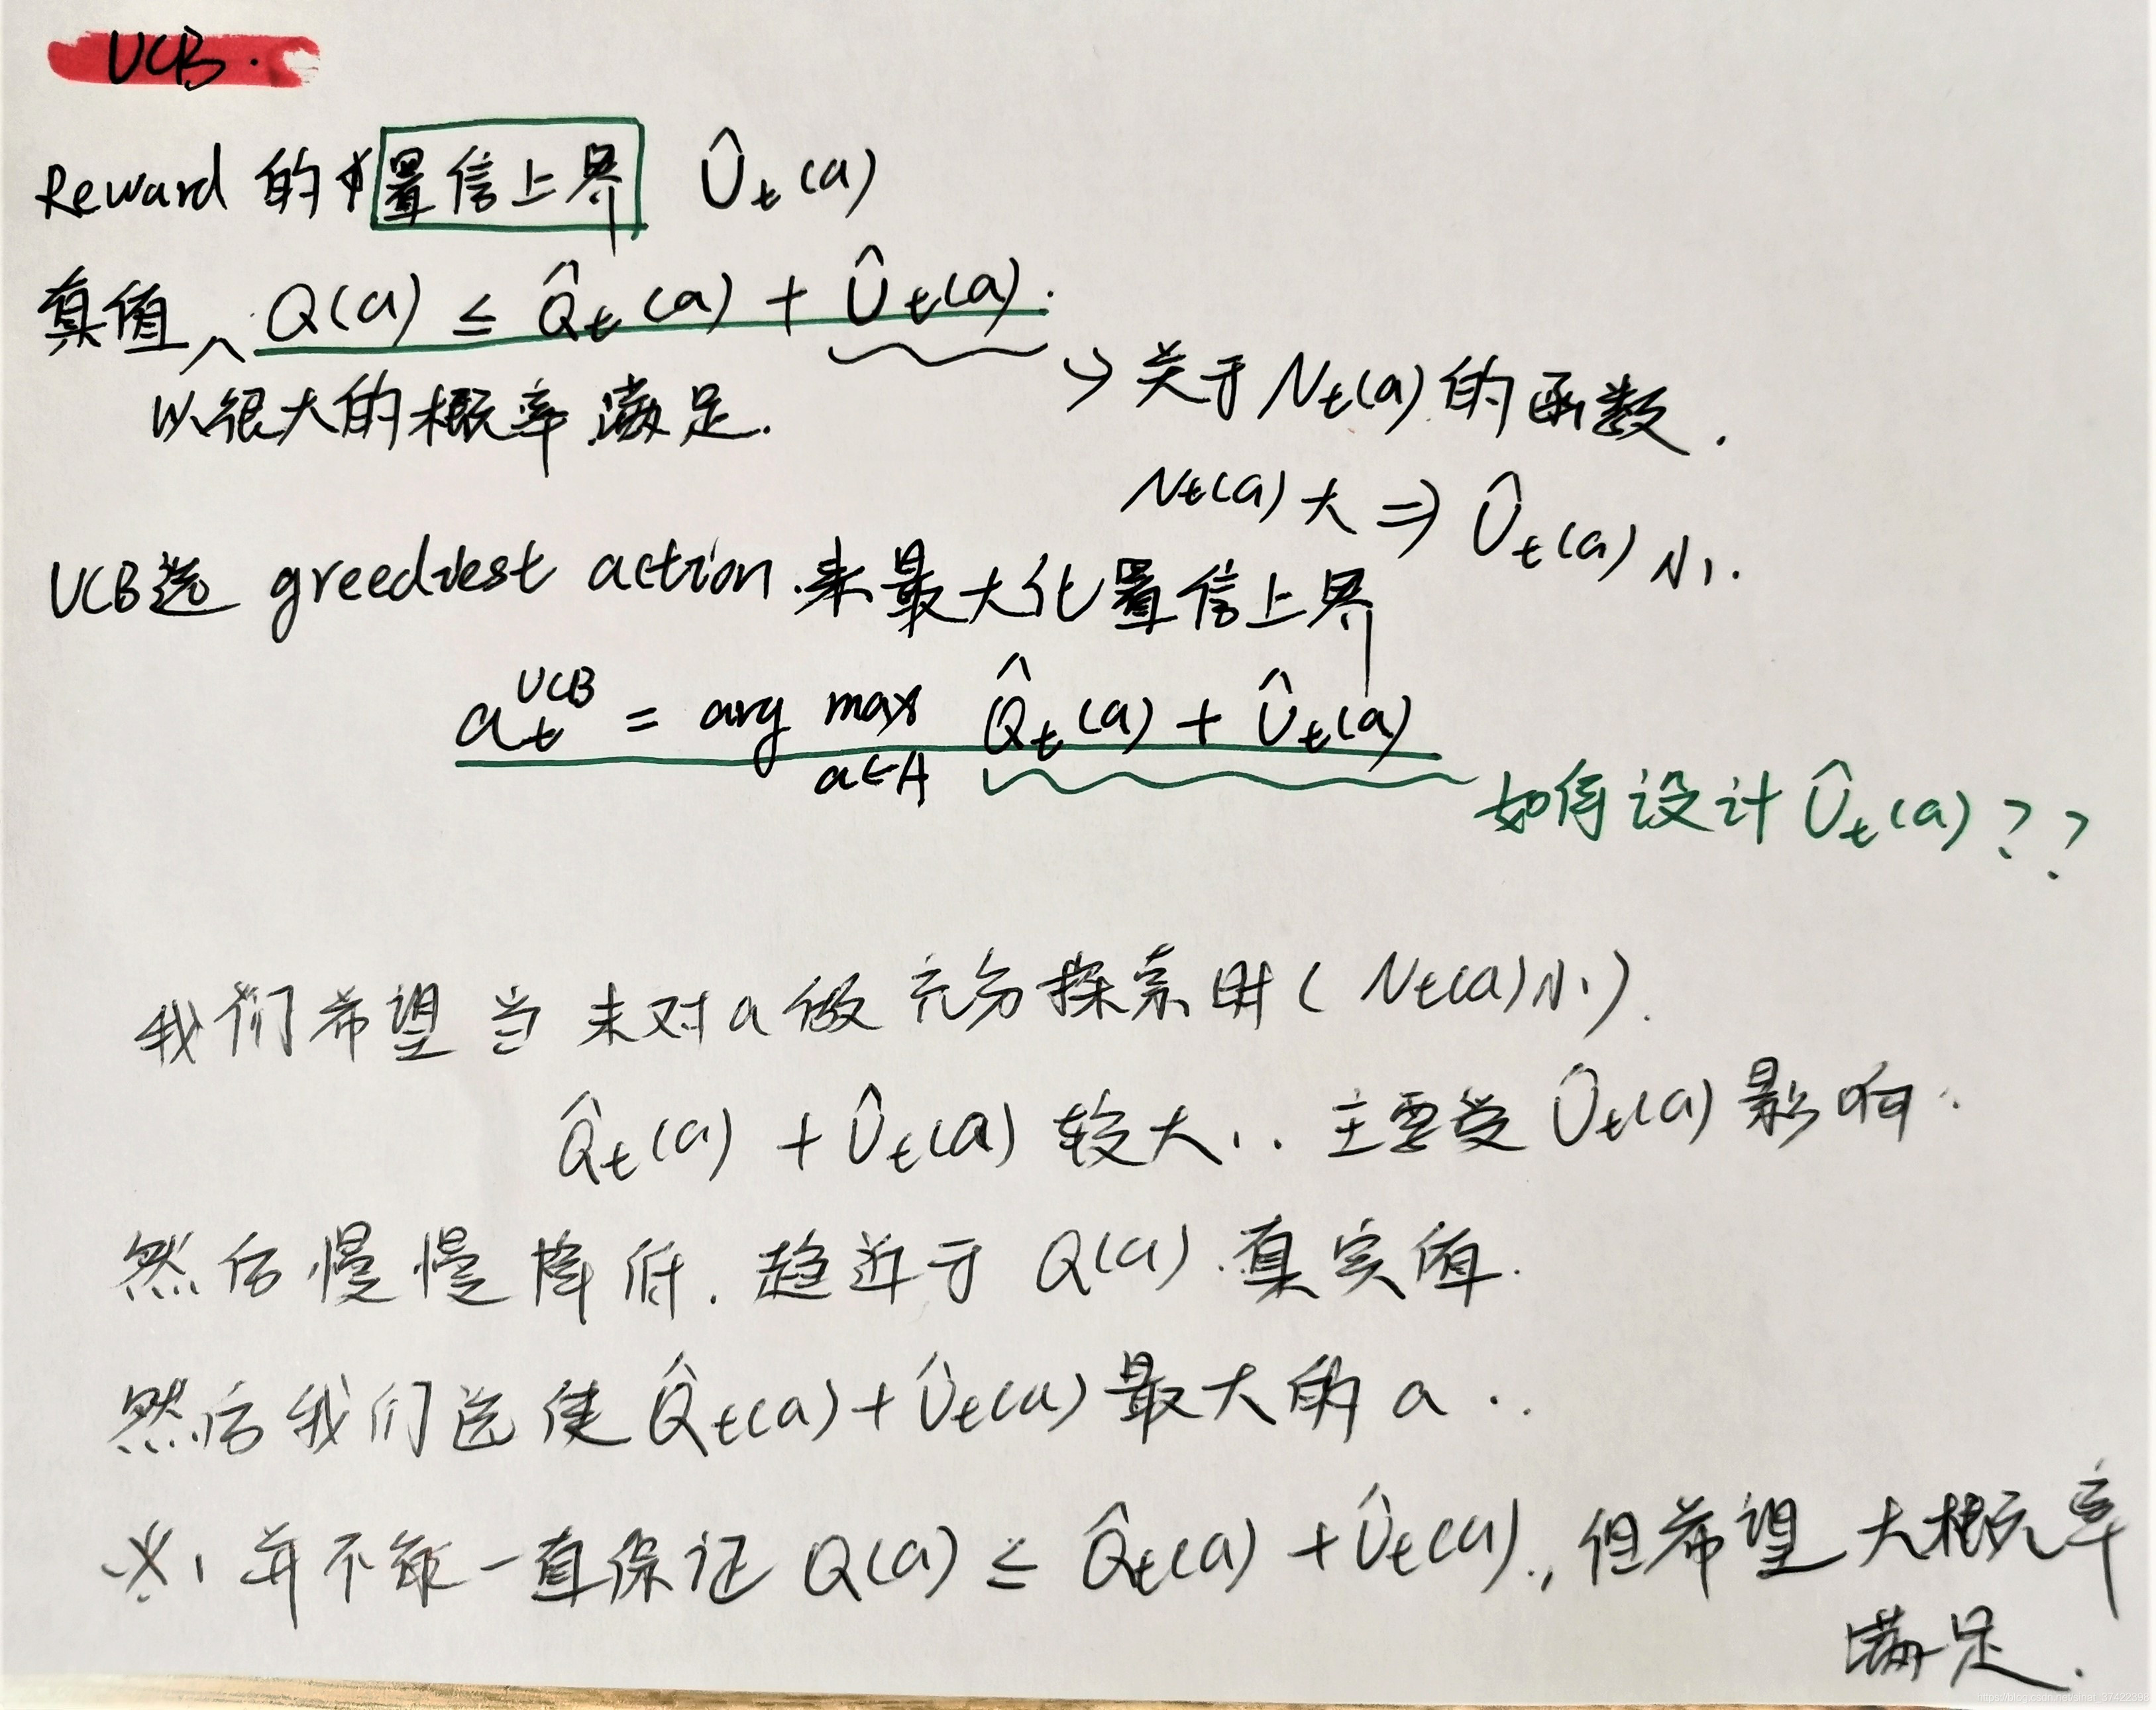 UCB.
Reward 的 置信上界 Û_t(a)
真值 Q(a) ≤ Q̂_t(a) + Û_t(a).
以很大的概率满足.
→ 关于 N_t(a) 的函数.
N_t(a) 大 ⇒ Û_t(a) 小.
UCB选 greediest action 来最大化置信上界
a_t^{UCB} = arg max_{a∈A} Q̂_t(a) + Û_t(a)
如何设计 Û_t(a) ??
我们希望当未对a做充分探索时( N_t(a)小).
Q̂_t(a) + Û_t(a) 较大,. 主要受 Û_t(a) 影响.
然后慢慢降低. 趋近于 Q(a) 真实值.
然后我们选使 Q̂_t(a)+Û_t(a) 最大的 a ..
※, 并不能一直保证 Q(a) ≤ Q̂_t(a) + Û_t(a)., 但希望大概率
满足.
https://blog.csdn.net/sinat_37422398